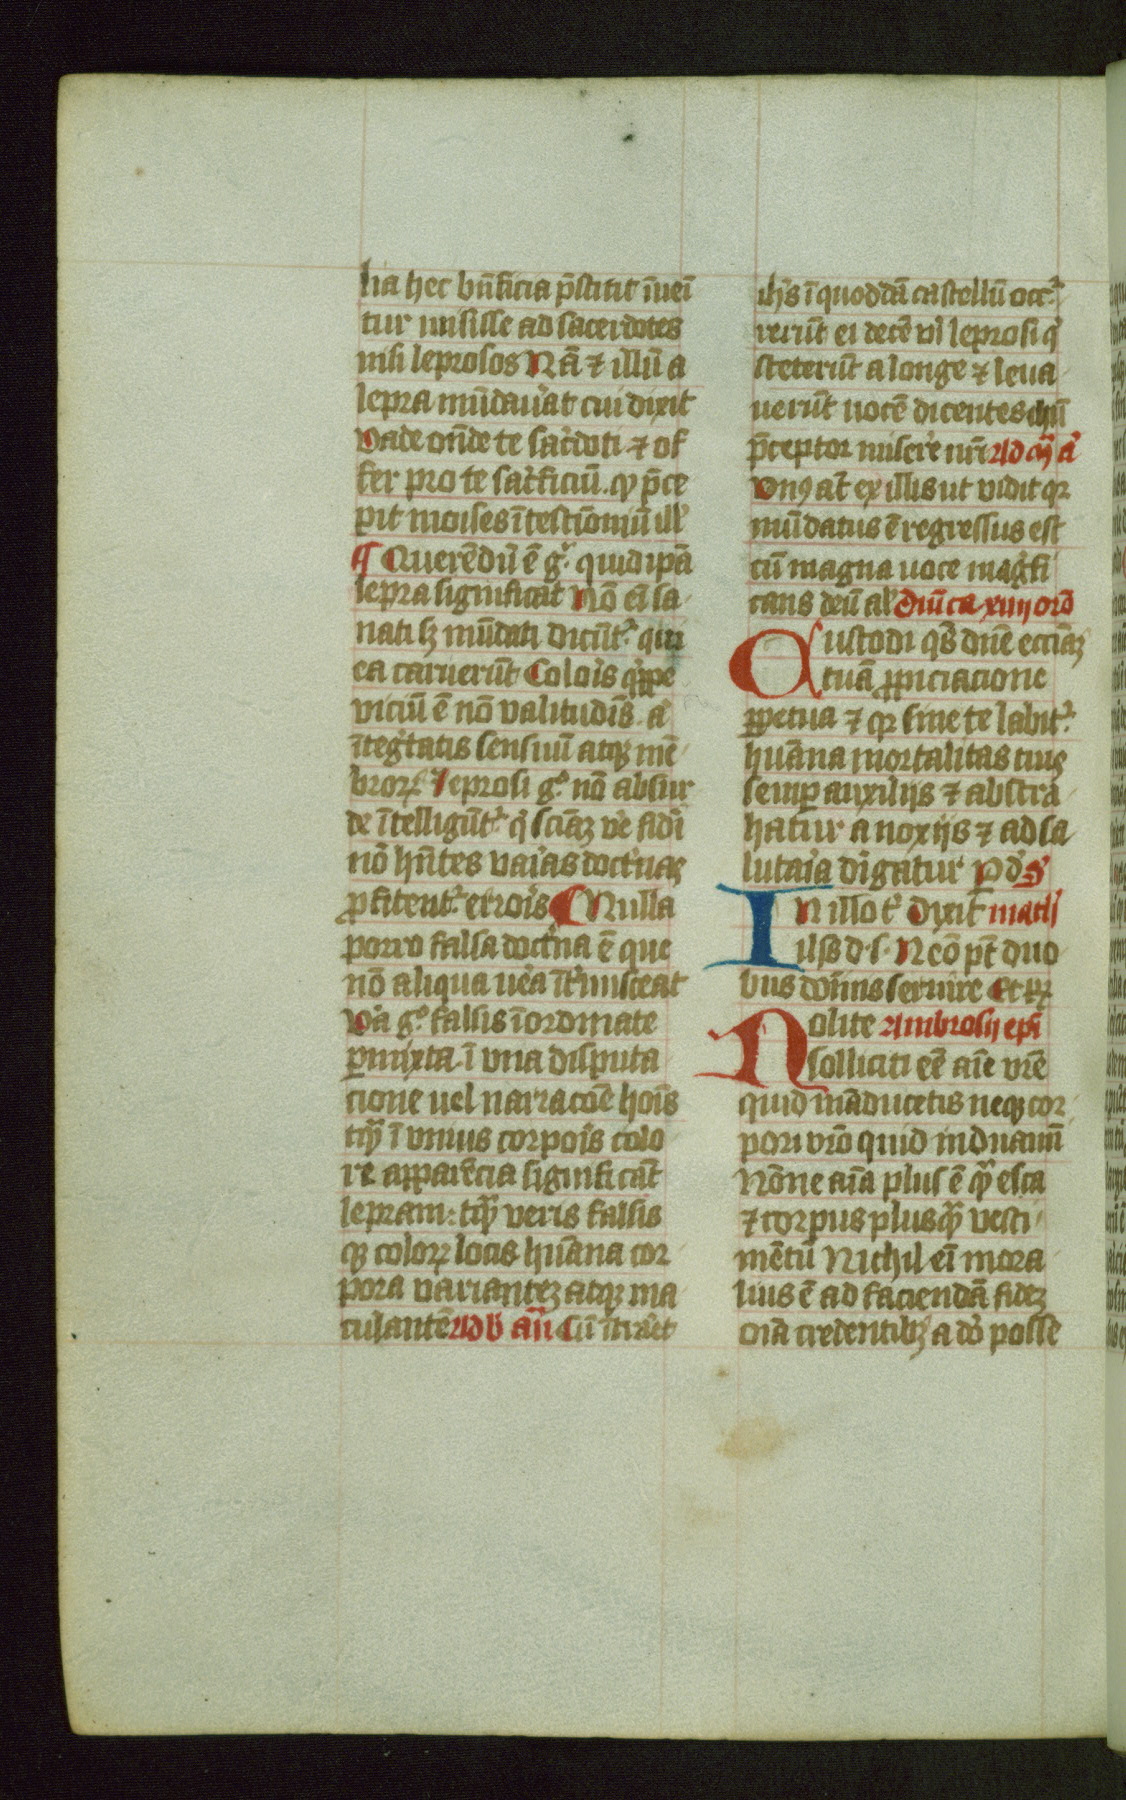 lia hec bn̄ficia p̄stitit īueī
tur misisse ad sacerdotes
nisi leprosos Nā ⁊ illū a
lepra mūdau̾at cui dixit
Vade on̄de te sac̾doti ⁊ of
fer pro te sac̾ficiū. qd̾ p̄ce
pit moises ī testīomiū ill̾
¶ Querēdū ē g̾ quid ip̄a
lepra significat Nō eī sa
nati sꝫ mūdati dicūt̾ qui
ea caruerūt Colois q̾ppe
viciū ē nō valitudīs. a̾
īteg̾tatis sensuū atqꝫ mē
broꝝ Leprosi g̊ nō absur
de ītelligūt̾ q̾ sciāꝫ ve̾ fidi̾
nō hn̄tes vaīas doct̾nas
ꝓfitent̾ errois ¶ Nulla
porro falsa doct̾na ē que
nō aliqua ue̾a īt̾misceat
Va̾ g̊ falsis īordinate
ꝑmixta ī vna disputa
cione uel narracōe hoīs
tāqͣ ī vnius corpois colo
re apparēcia significāt
lepram: tāqͣ veris falsis
qꝫ coloꝝ locis huāna cor
pora variantez atqꝫ ma
culantē Ad b̄ an̄ Cū īt̾ret
ih̄s ī quoddā castellū occ̾
rerūt ei decē vi̾ leprosi q̾
steterūt a longe ⁊ leua
uerūt vocē dicentes ihū
p̄ceptor misere̾ nr̄i Ad m̄ a̾
Vnꝰ at̄ ex illis ut vidit qꝛ
mūdatus ē regressus est
cū magna uoce mag̾fi
cans deū al̾ Dn̄ica xiiij orō
Custodi q̄s dn̄e eccīaꝫ
tuā ꝓpiciacione
ꝑpetua ⁊ qꝛ sine te labit̾
huāna mortalitas tuis
semꝑ auxilijs ⁊ abstra
hatur a noxijs ⁊ ad sa
lutaīa dīgatur P d̾ S̾
In illo t̾ Dixit math̾
ih̄s d. s. Nēo pt̄ duo
bus dōm̄is seruire Et rꝝ
Nolite Ambrosij ep̄i
solliciti eē aīe vr̄e
quid māducetis neqꝫ cor
pori vr̄o quid induamī
Nōne aīa plus ē qͣ esca
⁊ corpus plusqͣ vesti
mētū Nichil eī mora
lius ē ad faciendā fidez
oīa credentibꝫ a dō posse